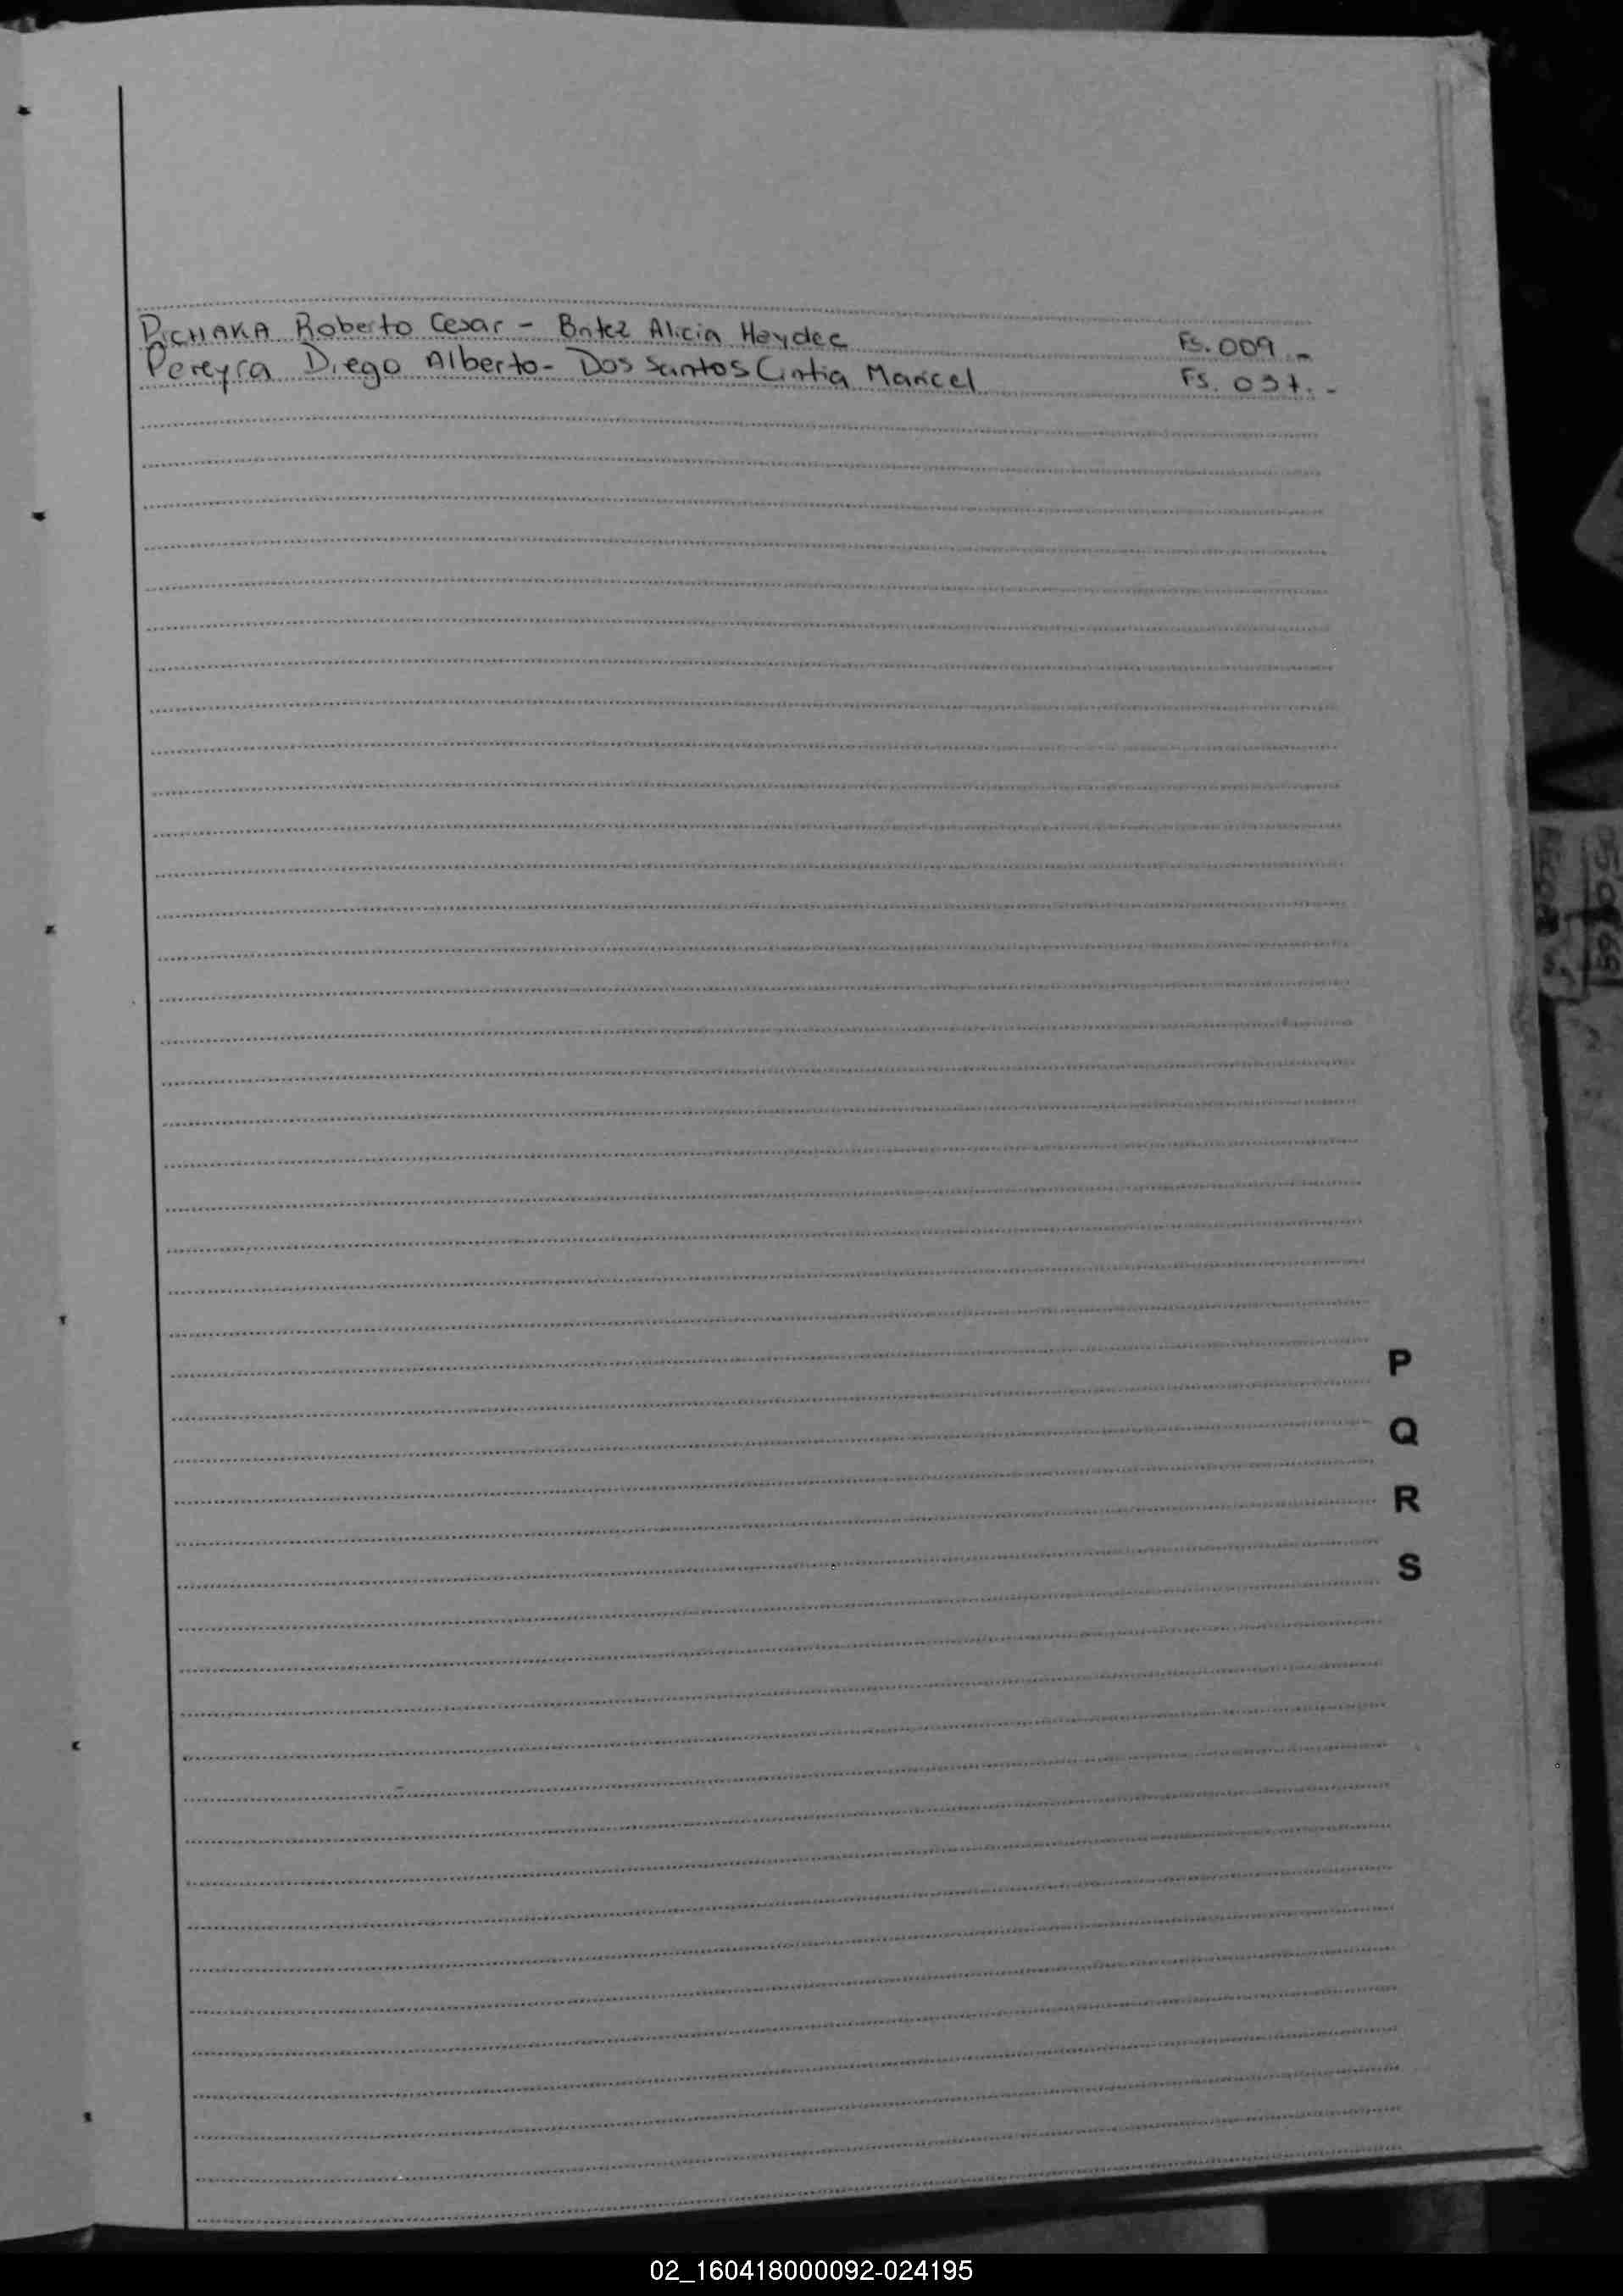 PICHAKA Roberto Cesar - Britez Alicia Heydee Fs. 009 -
Pereyra Diego Alberto - Dos Santos Cintia Maricel Fs. 037. -
P
Q
R
S
02_160418000092-024195